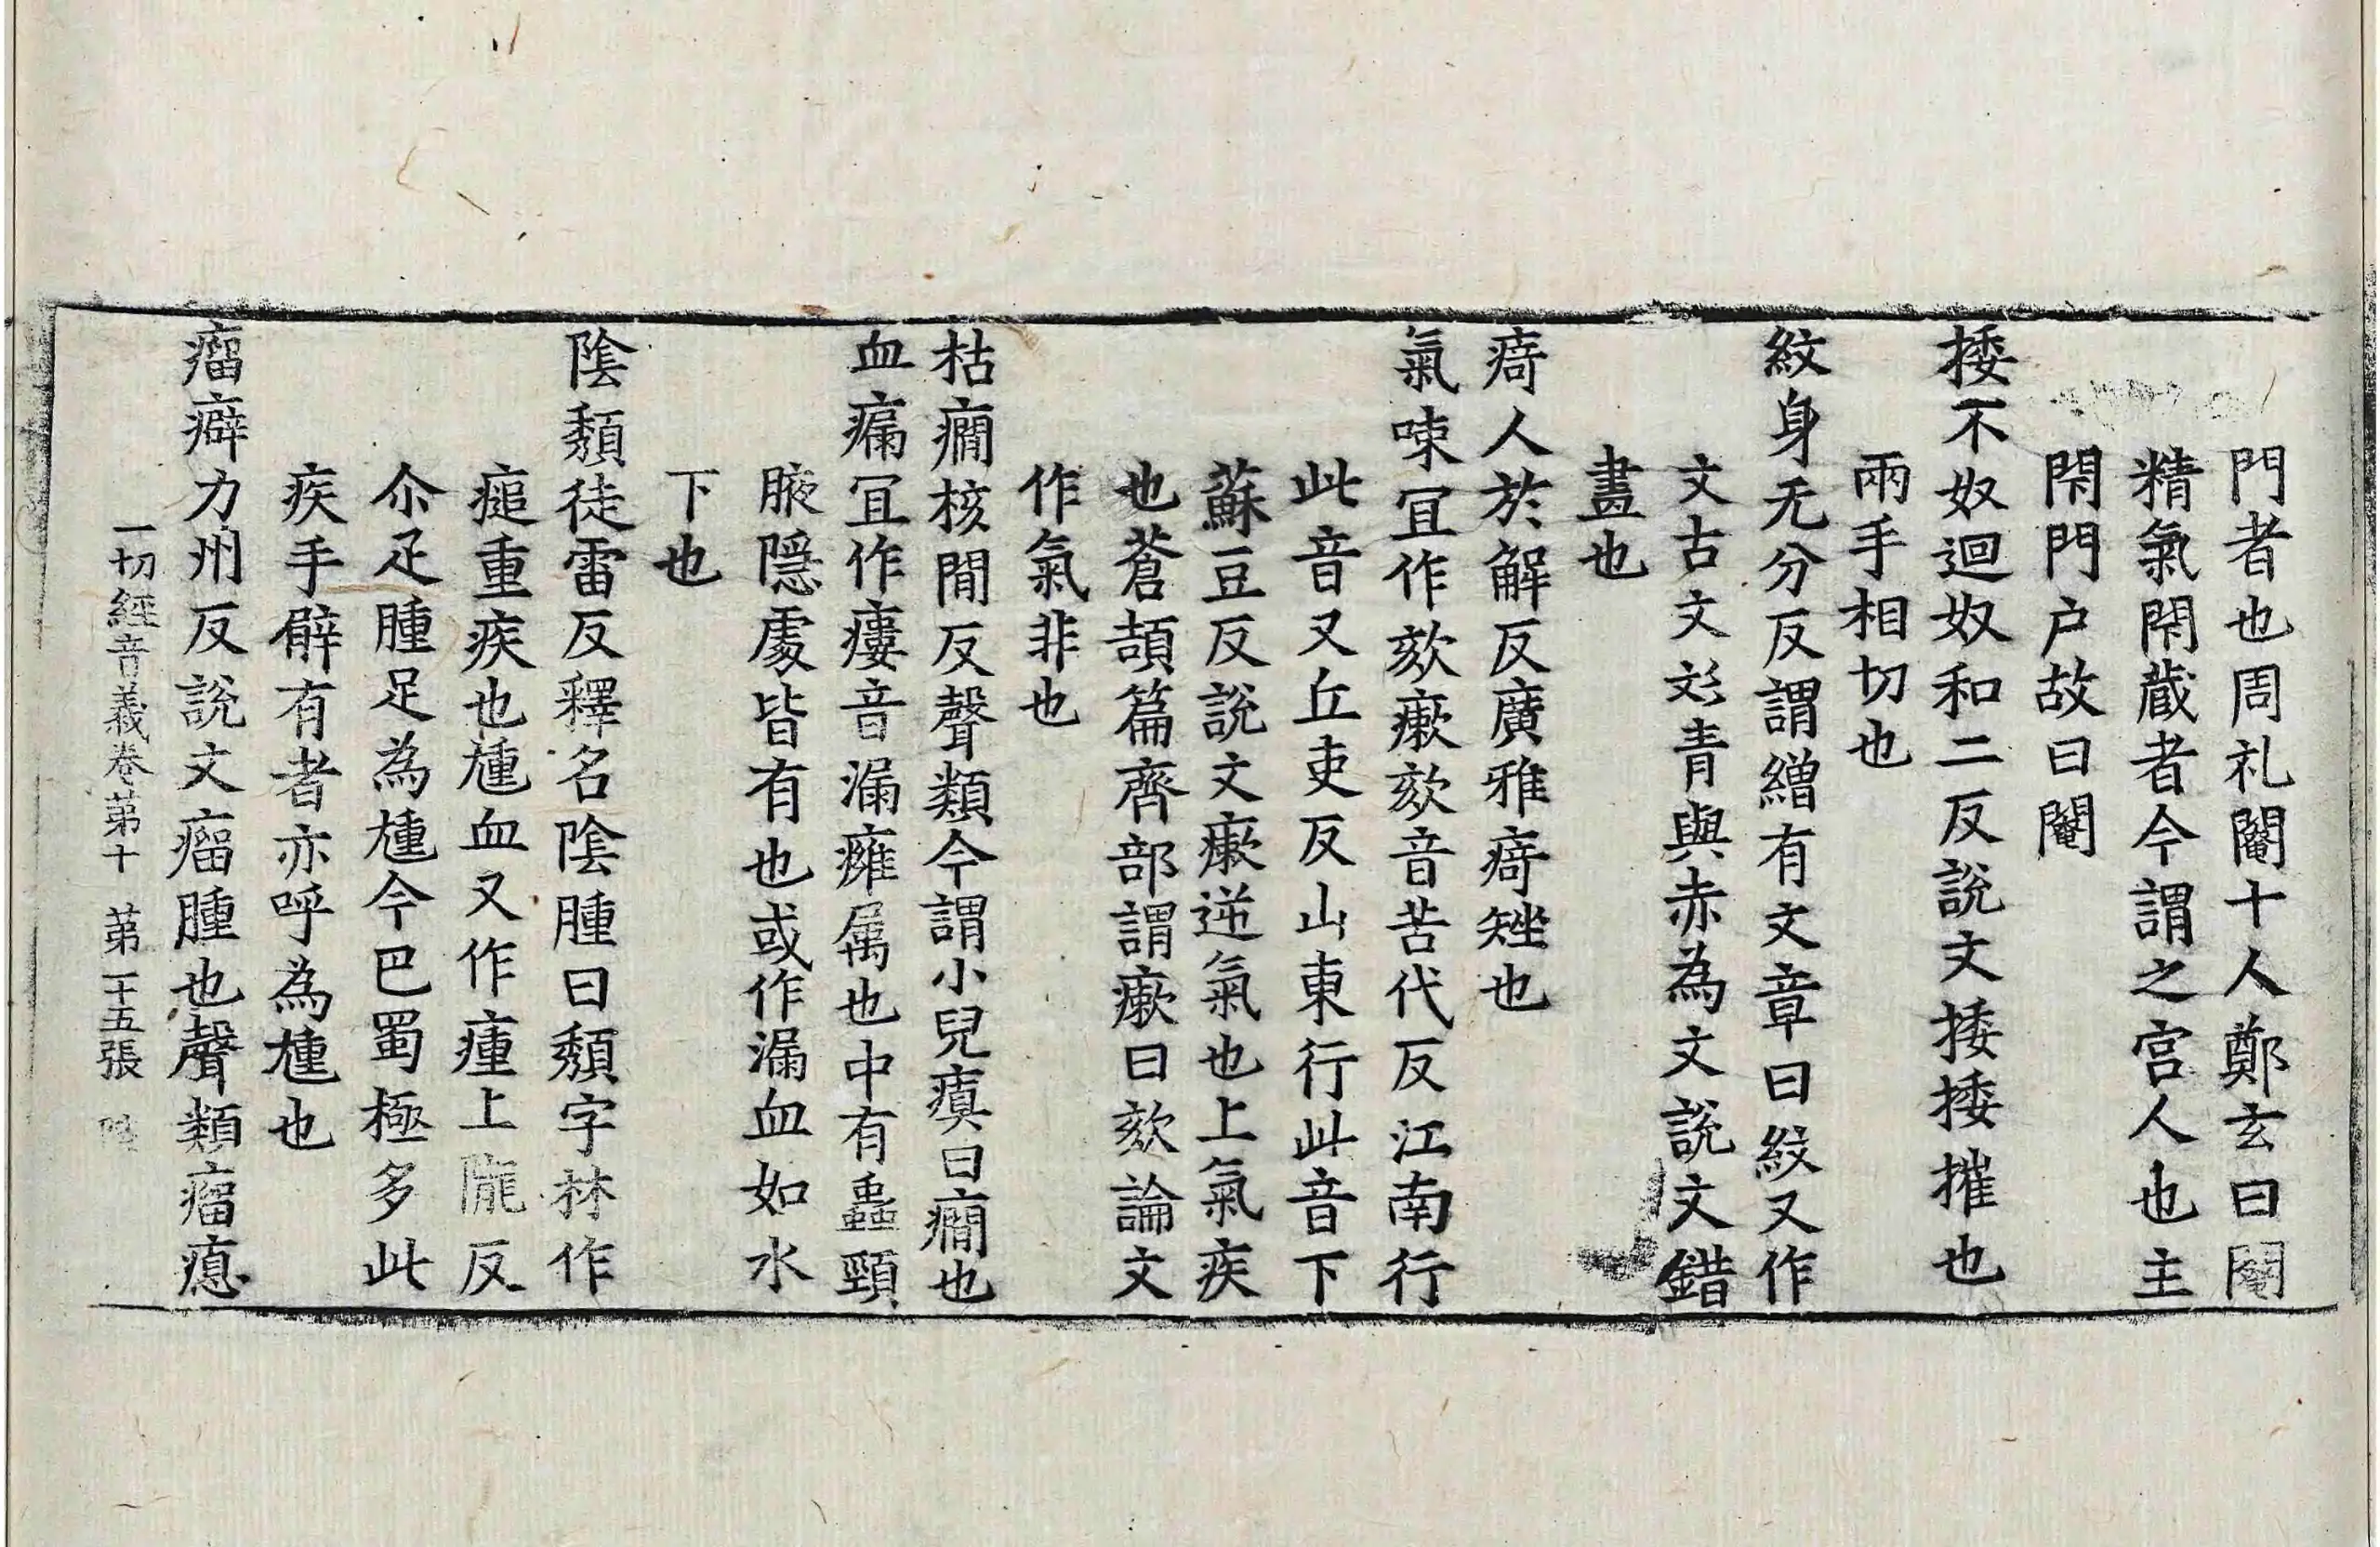 門者也周礼閹十人鄭玄曰閹
精氣閇蔵者今謂之宮人也主
閇門户故曰閹
捼不奴迴奴和二反說文捼捼摧也
兩手相切也
紋身无分反謂繒有文章曰紋又作
文古文彣青與赤為文說文錯
畫也
㾨人於解反廣雅㾨矬也
氣㖒冝作欬瘶欬音苦代反江南行
此音又丘吏反山東行此音下
蘇豆反說文瘶逆氣也上氣疾
也蒼頡篇齊部謂瘶曰欬論文
作氣非也
枯癎核閒反聲類今謂小兒瘨曰癎也
血㾈冝作瘻音漏癰属也中有蟲頸
腋隠處皆有也或作漏血如水
下也
陰頺徒雷反釋名陰腫曰頺字林作
㿗重疾也尰血又作瘇上隴反
尒疋腫足為尰今巴蜀極多此
疾手臂有者亦呼為尰也
瘤癖力州反說文瘤腫也聲類瘤瘜
一切經音義卷第十 第二十五張